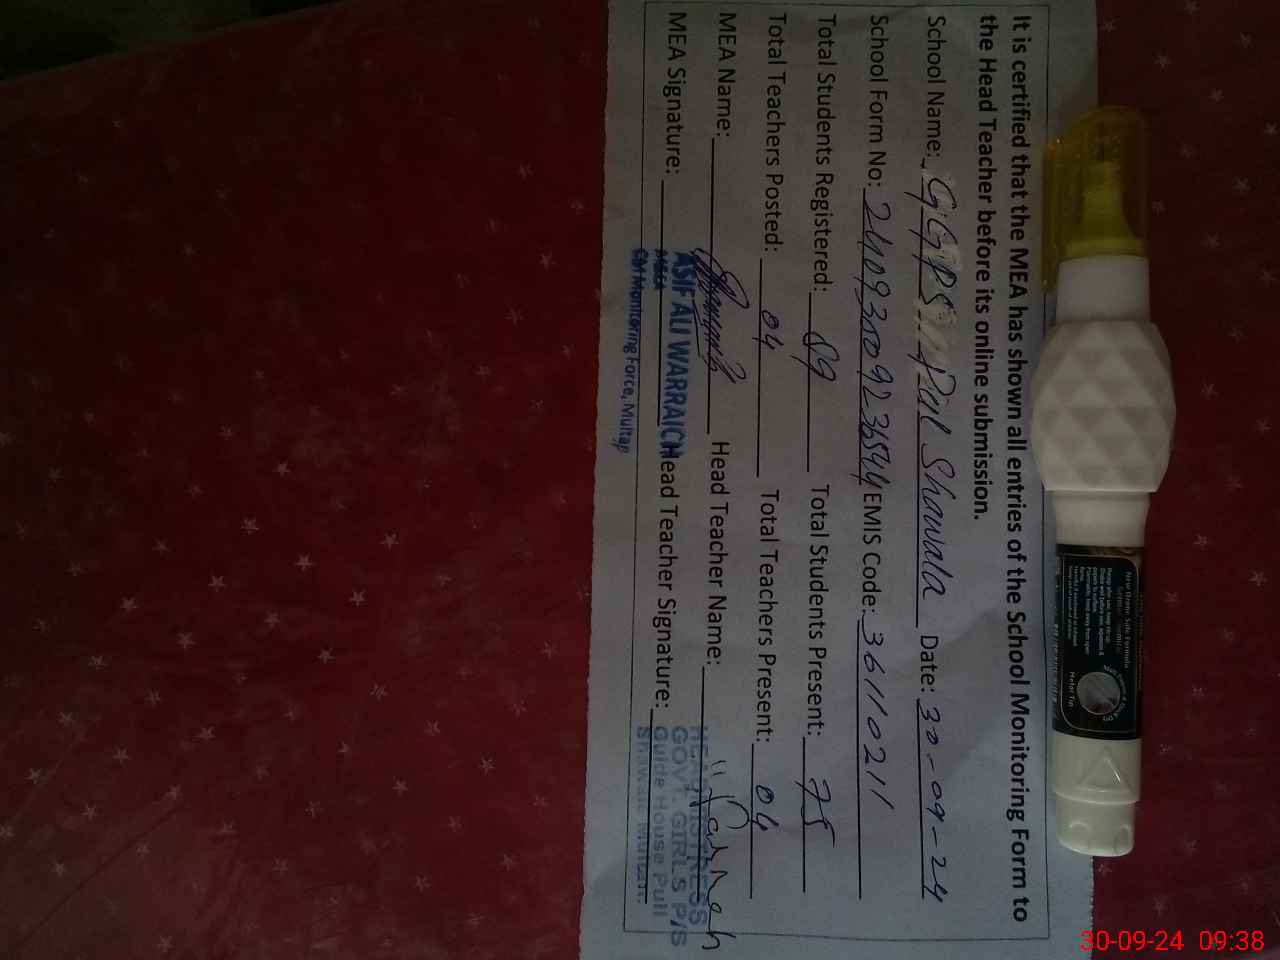 It is certified that the MEA has shown all entries of the School Monitoring Form to
the Head Teacher before its online submission.
School Name: GGPS Pul Shawala Date: 30-09-24
School Form No: EMIS Code: 36110211
Total Students Registered: 89 Total Students Present: 75
Total Teachers Posted: 04 Total Teachers Present: 04
MEA Name: Head Teacher Name:
MEA Signature: Head Teacher Signature:
ASIF ALI WARRAICH
MEA
CM Monitoring Force, Multan
HEADMISTRESS
GOVT. GIRLS P/S
Guide House Pull
Shawala Multan.
New Ozone Safe Formula
Metal Tip
30-09-24 09:38